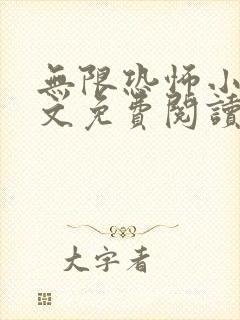 無限恐怖小
文免費閱讀
大字者